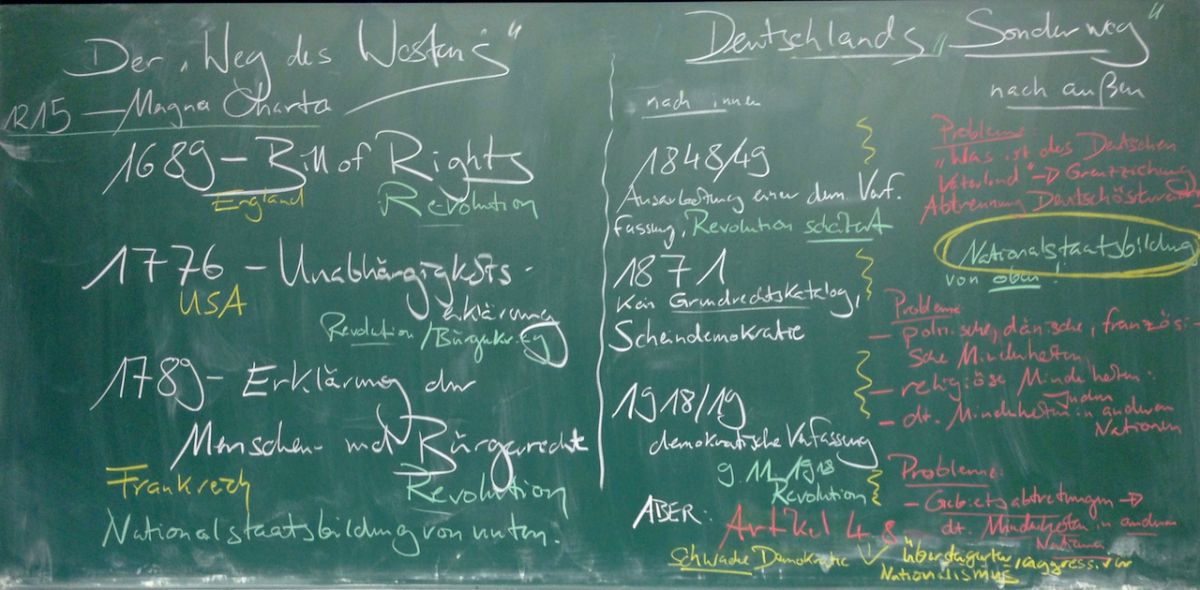 Der „Weg des Westens“
1215 – Magna Charta
1689 – Bill of Rights
England
Revolution
1776 – Unabhängigkeits-
erklärung
USA
Revolution/Bürgerkrieg
1789 – Erklärung der
Menschen- und Bürgerrechte
Frankreich
Revolution
Nationalstaatsbildung von unten.
Deutschlands „Sonderweg“
nach innen
1848/49
Ausarbeitung einer dem. Verf.
fassung, Revolution scheitert
1871
Kein Grundrechtskatalog,
Scheindemokratie
1918/19
demokratische Verfassung
9.11.1918
Revolution
ABER: Artikel 48
schwache Demokratie
nach außen
Probleme:
„Was ist des Deutschen
Vaterland“ → Grenzziehung
Abtrennung Deutschösterreichs
Nationalstaatsbildung
von oben!
Probleme:
– polnische, dänische, französi-
sche Minderheiten
– religiöse Minderheiten:
Juden
– dt. Minderheiten in anderen
Nationen
Probleme:
– Gebietsabtretungen →
dt. Minderheiten in anderen
Nationen
übersteigerter, aggressiver
Nationalismus